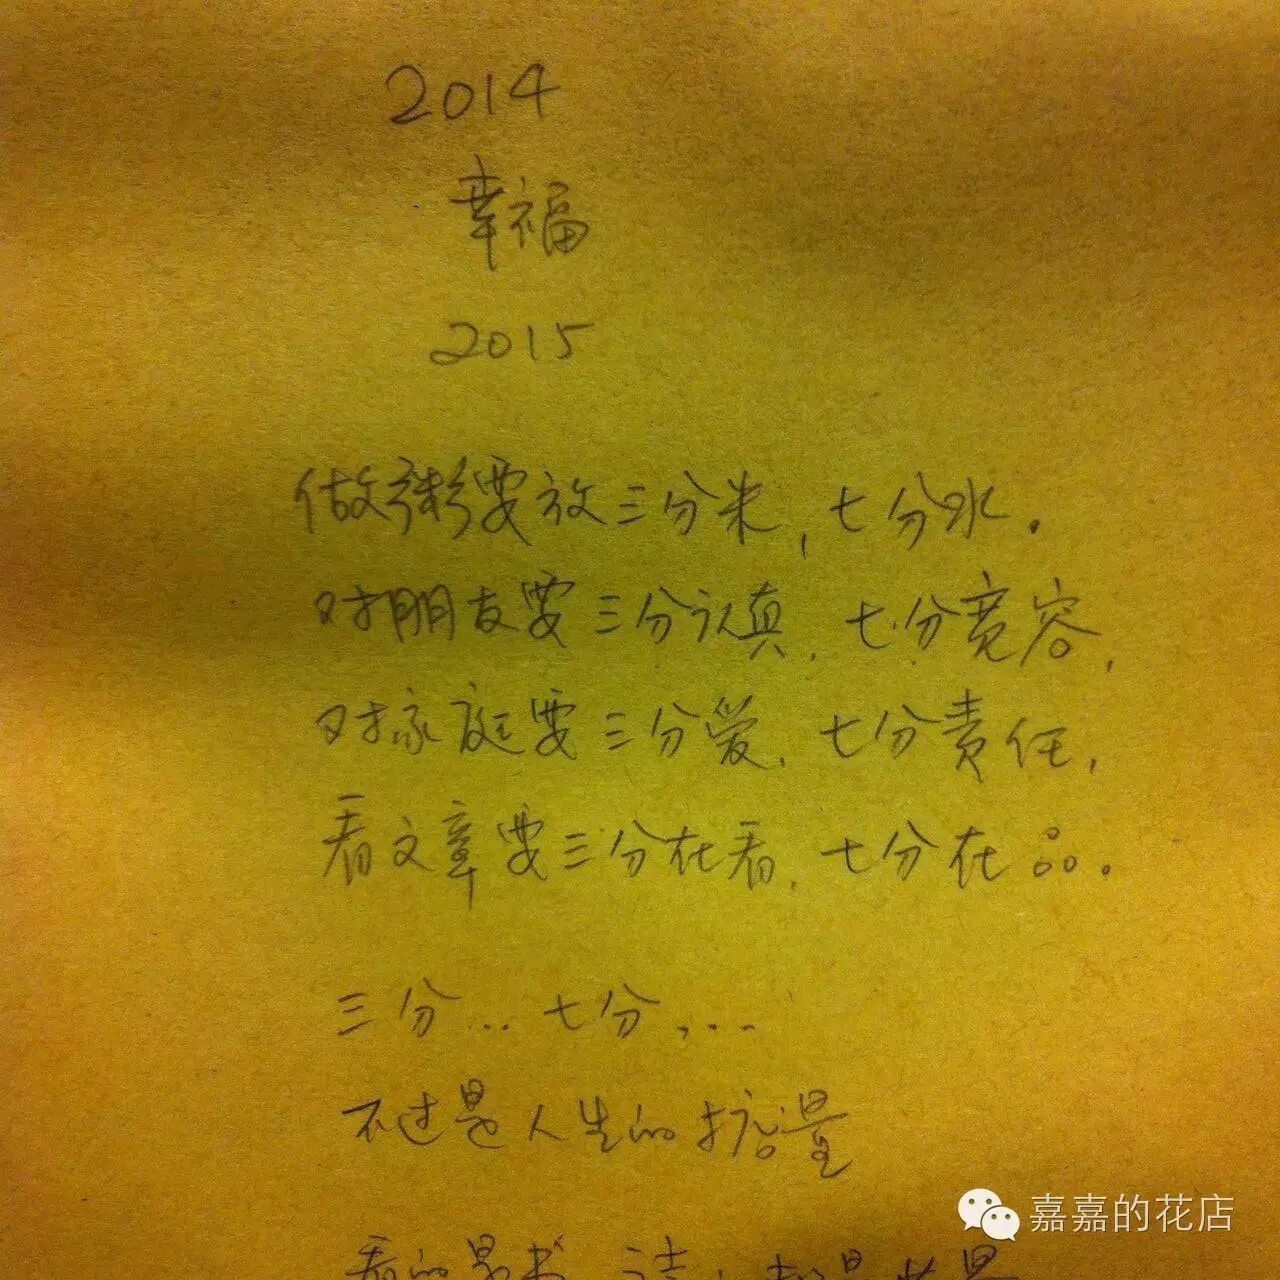 2014
幸福
2015
做粥要放三分米,七分水.
对朋友要三分认真,七分宽容,
对家庭要三分爱,七分责任,
看文章要三分在看,七分在品。
三分...七分,...
不过是人生的掂量
看的是书
嘉嘉的花店